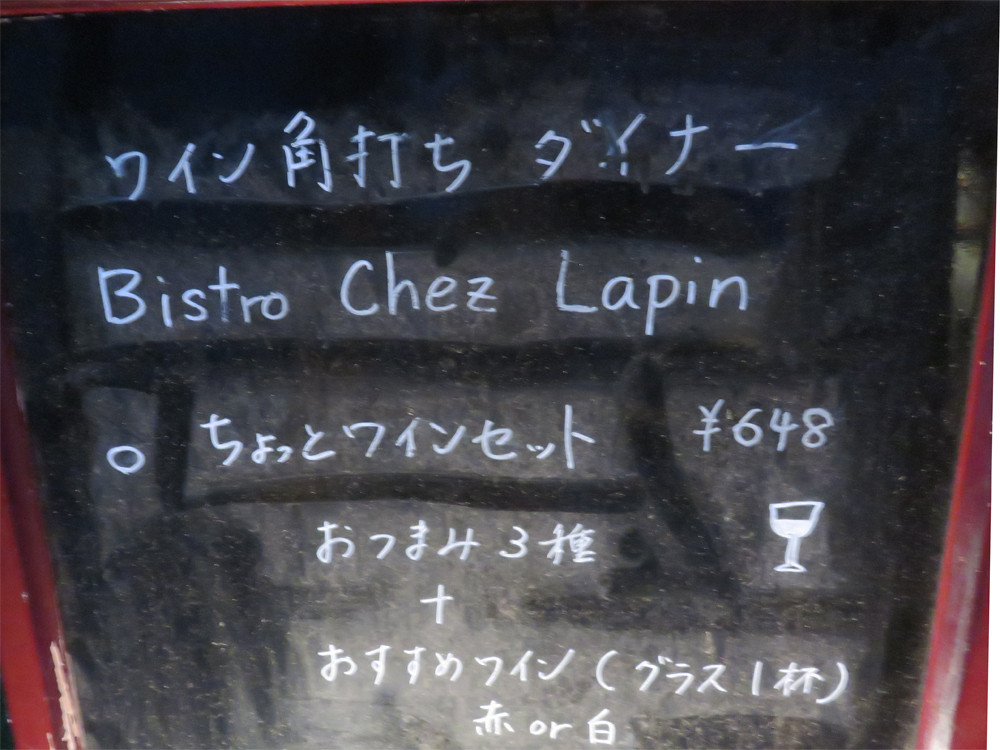 ワイン角打ち ダイナー
Bistro Chez Lapin
○ ちょっとワインセット ¥648
おつまみ3種
+
おすすめワイン(グラス1杯)
赤or白